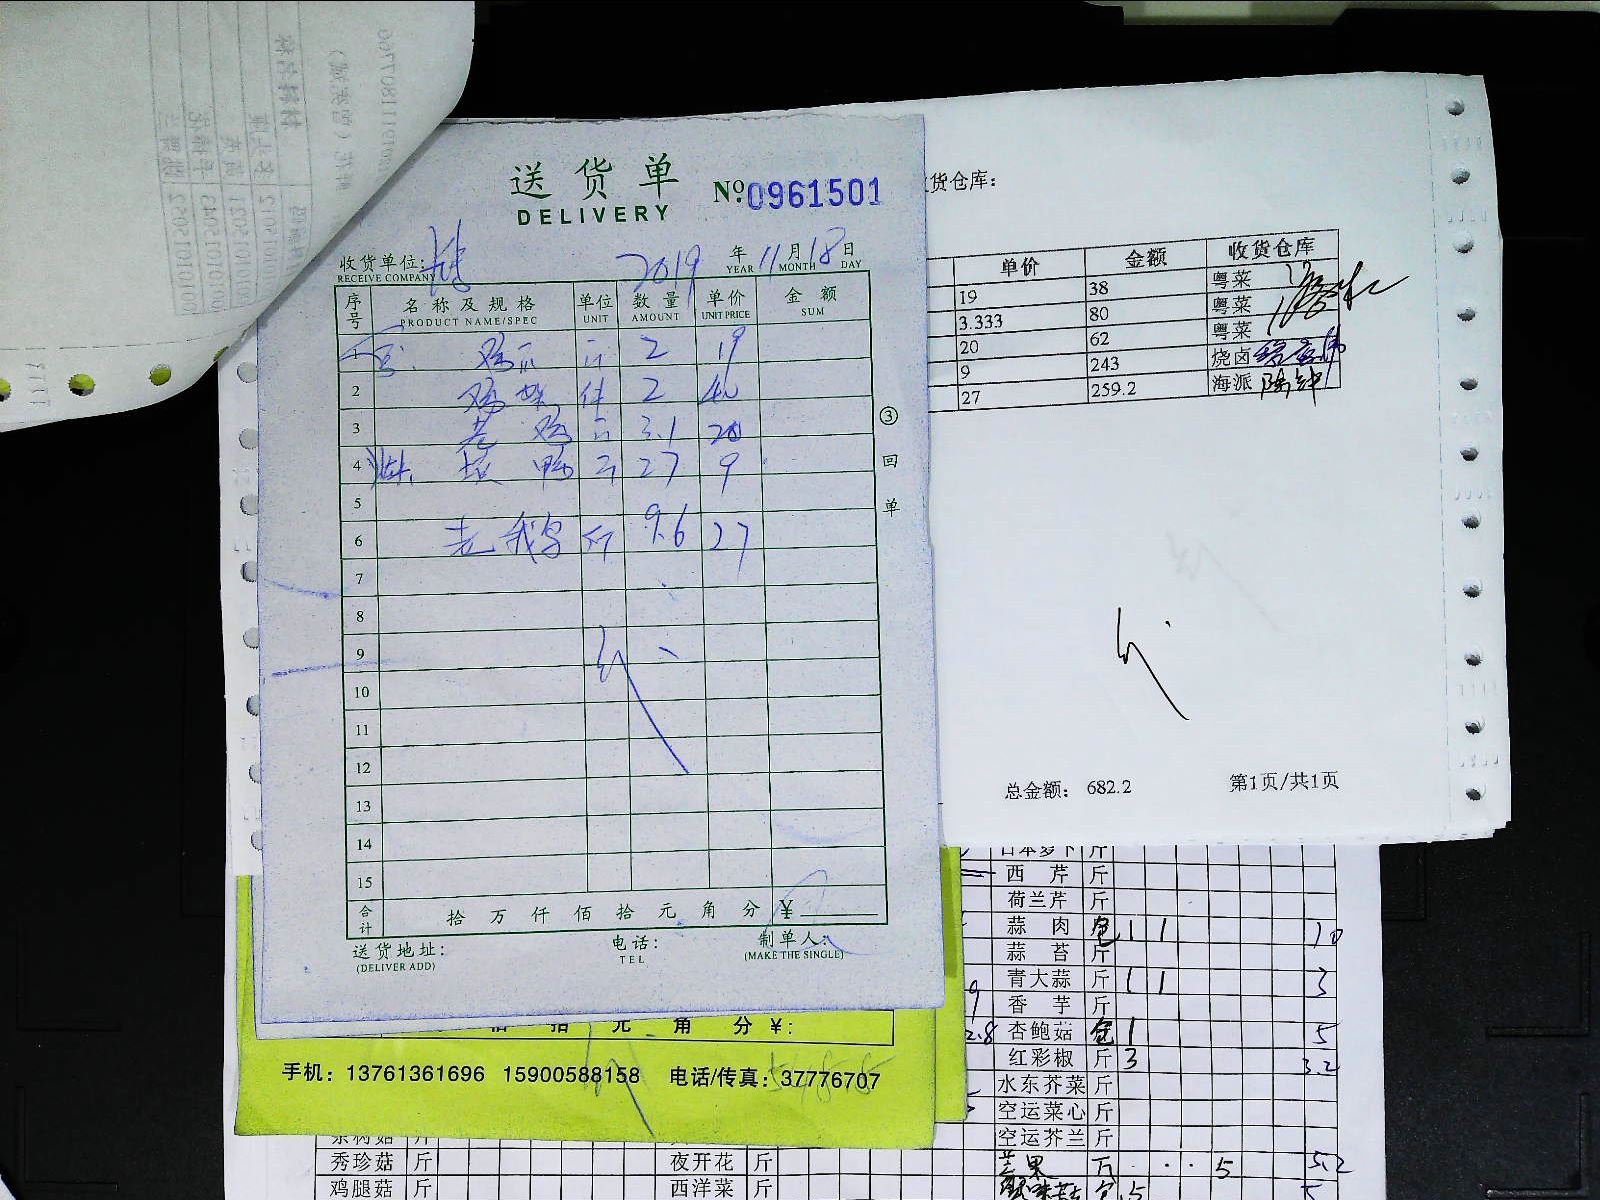 送货单
DELIVERY
No.0961501
收货单位:
RECEIVE COMPANY
2019 年 11 月 18 日
YEAR MONTH DAY
序号 名称及规格 单位 数量 单价 金额
PRODUCT NAME/SPEC UNIT AMOUNT UNIT PRICE SUM
1 2 19
2 件 2 40
3 老鸡 斤 3.1 20
4 鸭 斤 27 9
5
6 老鹅 斤 9.6 27
7
8
9
10
11
12
13
14
15
合计 拾万仟佰拾元角分 ¥
送货地址:
(DELIVER ADD)
电话:
TEL
制单人:
(MAKE THE SINGLE)
③回单
货仓库:
单价 金额 收货仓库
19 38 粤菜
3.333 80 粤菜
20 62 粤菜
9 243 烧卤
27 259.2 海派
总金额: 682.2
第1页/共1页
拾 元 角 分 ¥:
手机: 13761361696 15900588158 电话/传真: 37776707
日本萝卜 斤
西芹 斤
荷兰芹 斤
蒜肉 包 1 1 10
蒜苔 斤
青大蒜 斤 1 1 3
香芋 斤
杏鲍菇 包 1 5
红彩椒 斤 3 3.2
水东芥菜 斤
空运菜心 斤
空运芥兰 斤
芒果 5 5.2
茶树菇 斤
秀珍菇 斤 夜开花 斤
鸡腿菇 斤 西洋菜 斤